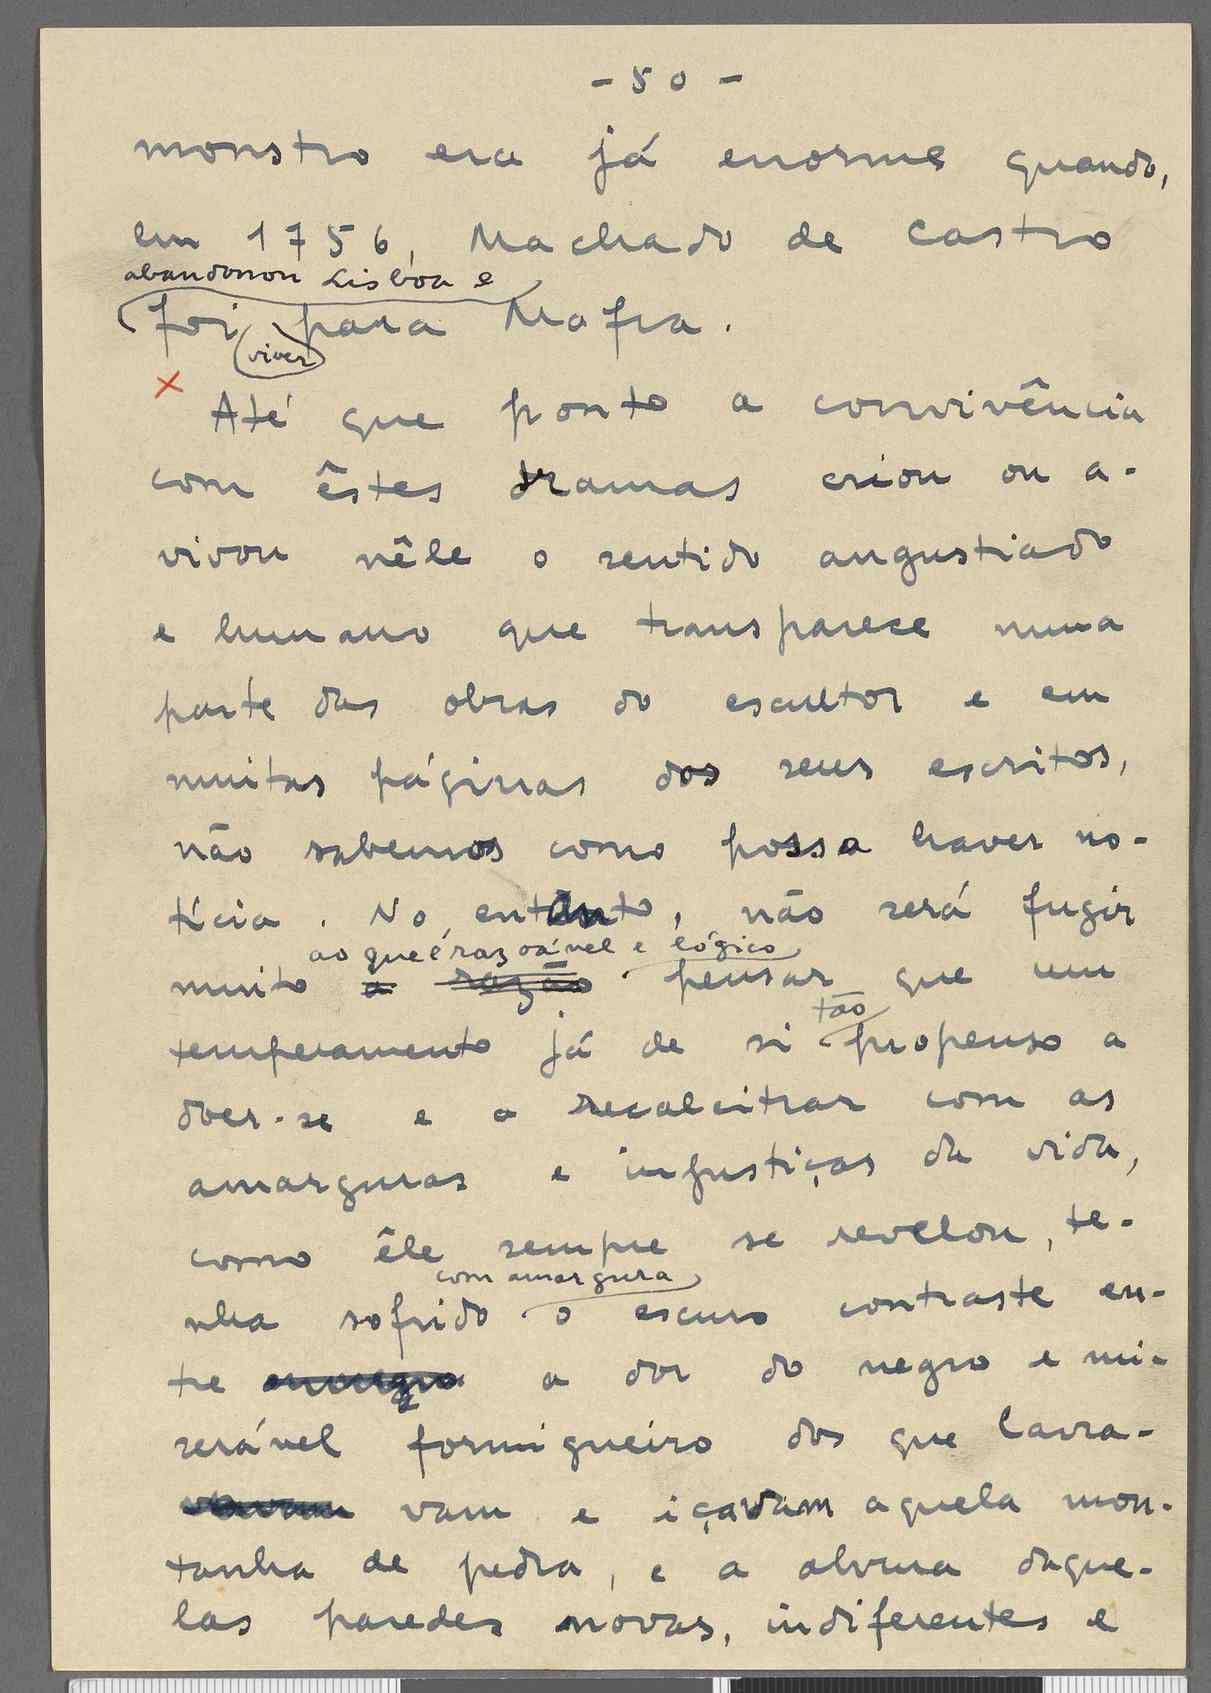 - 50 -
monstro era já enorme quando,
em 1756, Machado de Castro
abandonou Lisboa e
foi para Mafra.
viver
x
Até que ponto a convivência
com êstes dramas criou ou a-
vivou nêle o sentido angustiado
e humano que transparece numa
parte das obras do escultor e em
muitas páginas dos seus escritos,
não sabemos como possa haver no-
tícia. No entanto, não será fugir
ao que é razoável e lógico
muito a razão pensar que um
tão
temperamento já de si propenso a
doer-se e a recalcitrar com as
amarguras e injustiças da vida,
como êle sempre se revelou, te-
com amargura
nha sofrido o escuro contraste en-
tre a dor do negro e mi-
serável formigueiro dos que lavra-
vam e içavam aquela mon-
tanha de pedra, e a alvura daque-
las paredes novas, indiferentes e